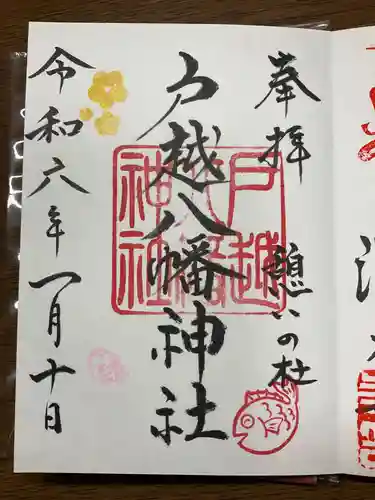 奉拝 憩いの杜
戸越八幡神社
戸越八幡神社
令和六年一月十日